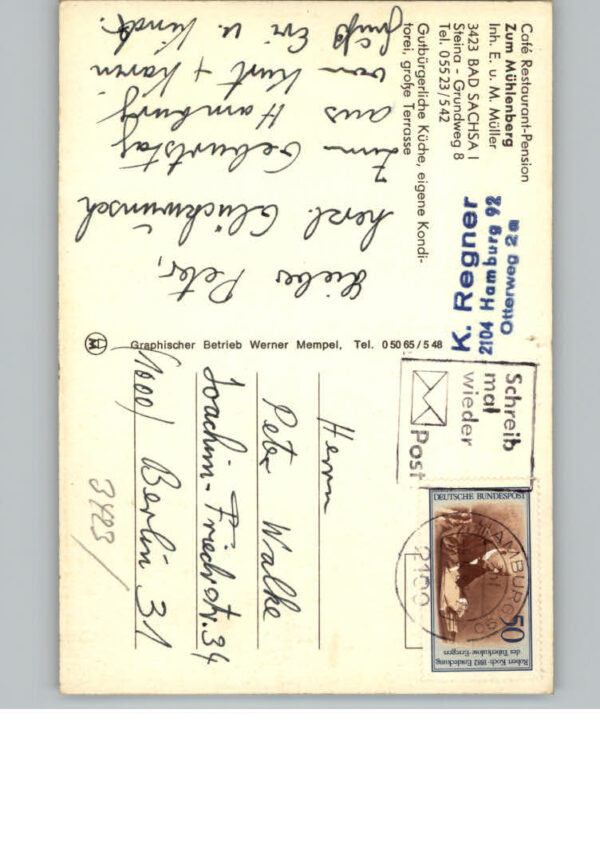 Café Restaurant-Pension
Zum Mühlenberg
Inh. E. u. M. Müller
3423 BAD SACHSA I
Steina - Grundweg 8
Tel. 0 55 23 / 5 42
Gutbürgerliche Küche, eigene Kondi-
torei, große Terrasse
K. Regner
2104 Hamburg 92
Otterweg 2a
Lieber Peter,
herzl. Glückwünsch
zum Geburtstag
aus Hamburg
von Kurt + Karin
Gruß Evi u. Kindt.
Graphischer Betrieb Werner Mempel, Tel. 0 50 65 / 5 48
Schreib
mal
wieder
Post
DEUTSCHE BUNDESPOST
50
Robert Koch · 1882 Entdeckung
des Tuberkulose-Erregers
HAMBURG 90
2100
Herrn
Peter Walke
Joachim-Friedrstr. 34
1000/ Berlin 31
3423/